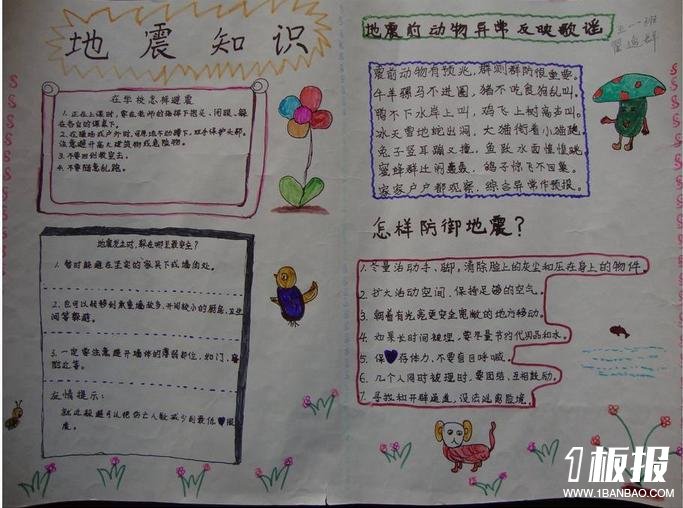 地震知识
在学校怎样避震
1.正在上课时，要在老师的指挥下抱头、闭眼、躲
在各自的课桌下。
2.在操场或户外时，可原地不动蹲下，双手保护头部。
注意避开高大建筑物或危险物。
3.不要回到教室去。
4.不要随意乱跑。
地震发生时，躲在哪里最安全？
1.暂时躲避在坚实的家具下或墙角处。
2.也可以转移到承重墙较多、开间较小的厨房、卫生
间等躲避。
3.一定要注意避开墙体的薄弱部位，如门、窗
附近等。
友情提示：
就此躲避可以把伤亡人数减少到最低限
度。
地震前动物异常反映歌谣
五一班
震前动物有预兆，群测群防很重要。
牛羊骡马不进圈，猪不吃食狗乱叫。
鸭不下水岸上叫，鸡飞上树高声叫。
冰天雪地蛇出洞，大猫衔着小猫跑。
兔子竖耳蹦又撞，鱼跃水面惶惶跳。
蜜蜂群迁闹轰轰，鸽子惊飞不回巢。
家家户户都观察，综合异常作预报。
怎样防御地震？
1.尽量活动手、脚，清除脸上的灰尘和压在身上的物件。
2.扩大活动空间，保持足够的空气。
3.朝着有光亮更安全宽敞的地方移动。
4.如果长时间被埋，要尽量节约代用品和水。
5.保存体力，不要盲目呼喊。
6.几个人同时被埋时，要团结，互相鼓励。
7.寻找和开辟通道，设法逃离险境。
1板报
WWW.1BANBAO.COM